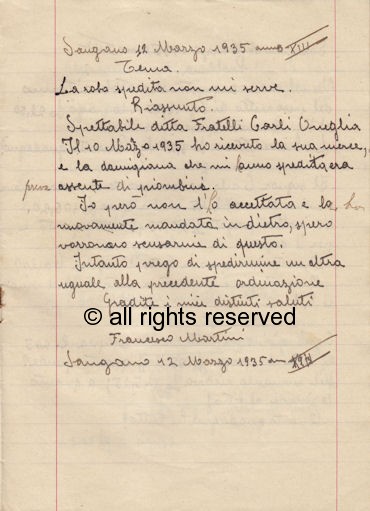 Sangano 12 Marzo 1935 anno XIII
Tema.
La roba spedita non mi serve.
Riassunto.
Spettabile ditta Fratelli Carli Oneglia
Il 10 Marzo 1935 ho ricevuto la sua merce,
e la damigiana che mi anno spedita, era
priva assente di piombini.
Io però non l'o accettata e la ho
nuovamente mandata indietro, spero
vorranno scusarmi di questo.
Intanto prego di spedirmene un altra
uguale alla precedente ordinazione
Gradite i miei distinti saluti
© all rights reserved
Francesco Martini
Sangano 12 Marzo 1935